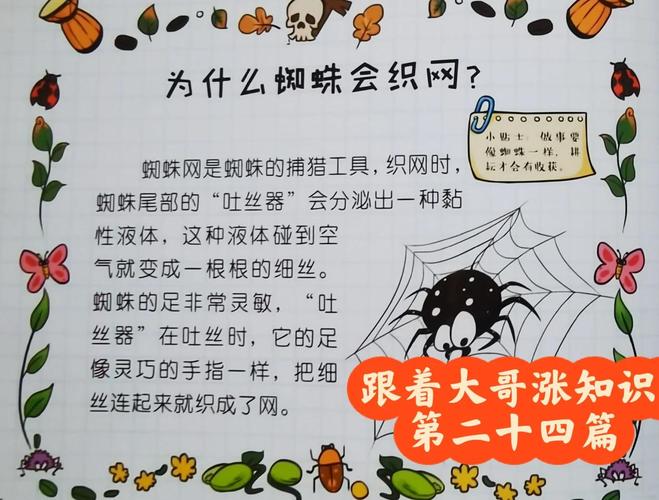 为什么蜘蛛会织网?
小贴士:做事要
像蜘蛛一样,耕
坛才会有收获。
蜘蛛网是蜘蛛的捕猎工具,织网时,
蜘蛛尾部的“吐丝器”会分泌出一种黏
性液体,这种液体碰到空
气就变成一根根的细丝。
蜘蛛的足非常灵敏,“吐
丝器”在吐丝时,它的足
像灵巧的手指一样,把细
丝连起来就织成了网。
跟着大哥涨知识
第二十四篇